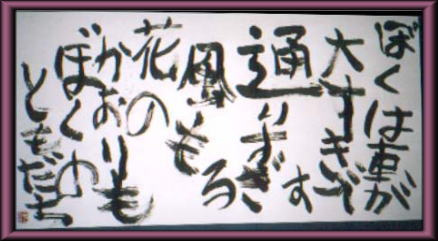 ぼくは車が
大すきです
通りすぎる
風も
花の
かおりも
ぼくの
ともだち